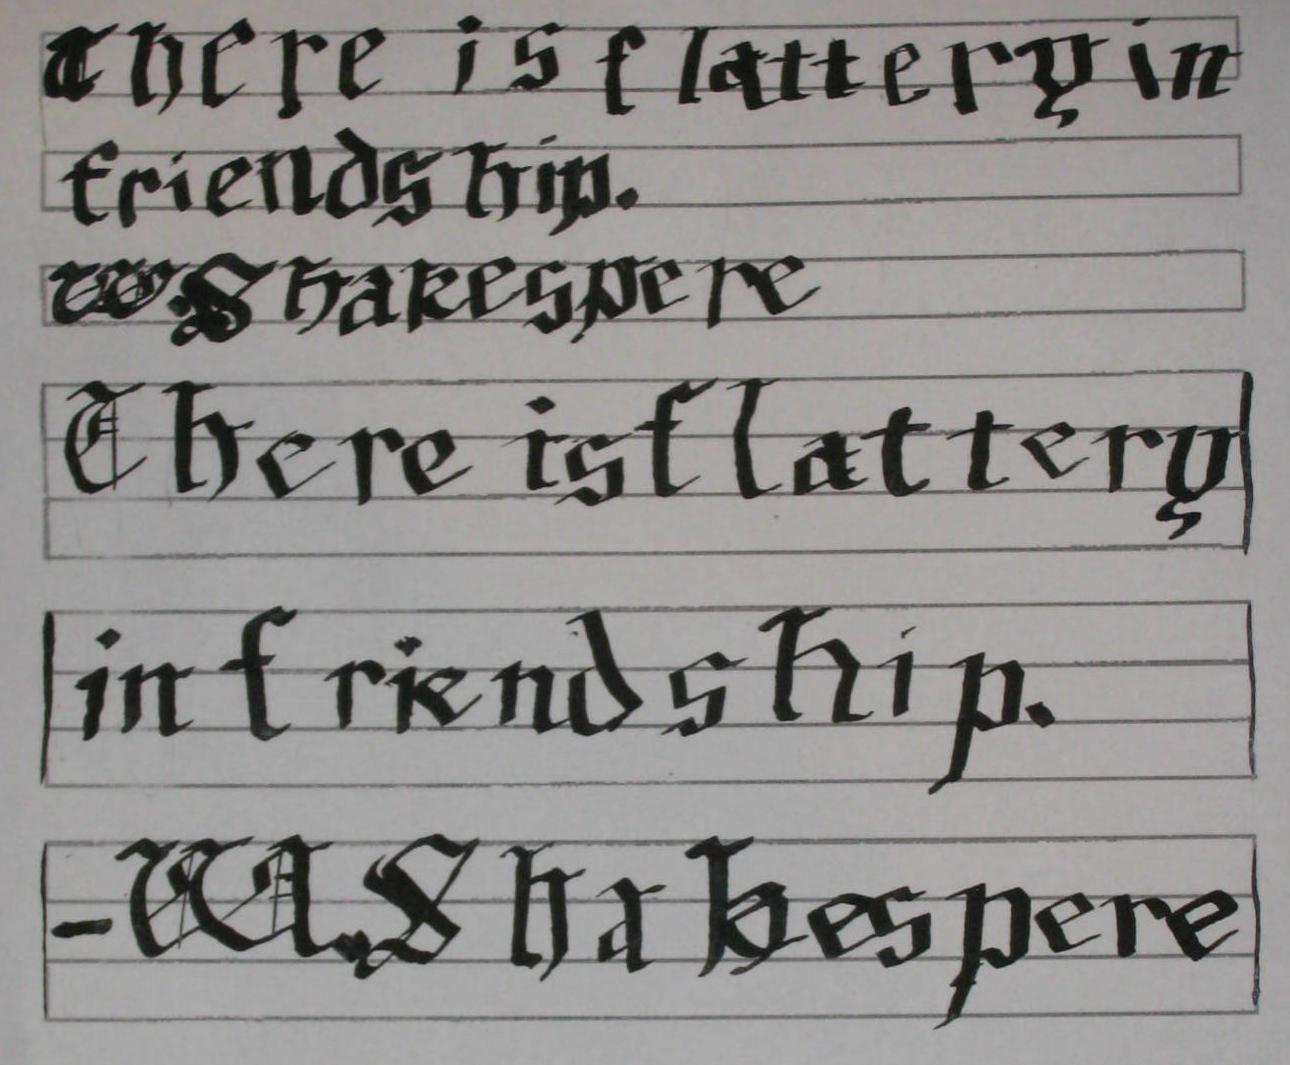 There is flattery in
friendship.
W.Shakespere
There is flattery
in friendship.
-W.Shakespere